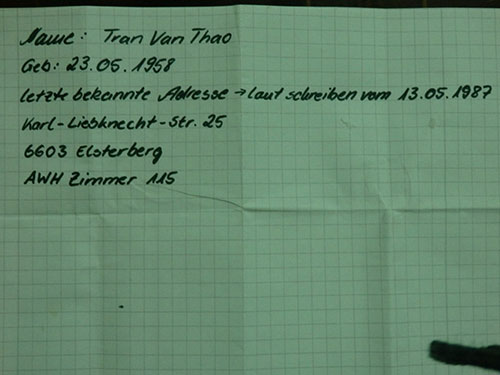 Name: Tran Van Thao
Geb: 23.05.1958
letzte bekannte Adresse → laut schreiben vom 13.05.1987
Karl-Liebknecht-Str. 25
6603 Elsterberg
AWH Zimmer 115